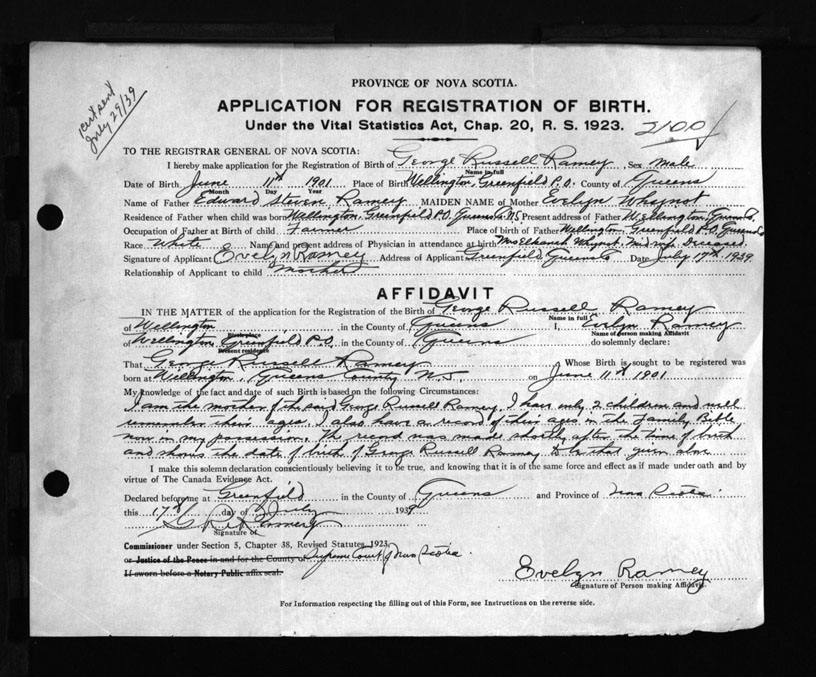 Cert sent
July 29/39
PROVINCE OF NOVA SCOTIA.
APPLICATION FOR REGISTRATION OF BIRTH.
Under the Vital Statistics Act, Chap. 20, R. S. 1923.
2100
TO THE REGISTRAR GENERAL OF NOVA SCOTIA:
I hereby make application for the Registration of Birth of George Russell Ramey Sex Male
Name in full
Date of Birth June 11th 1901 Place of Birth Wellington, Greenfield P.O. County of Queens
Month Day Year
Name of Father Edward Steven Ramey MAIDEN NAME of Mother Evelyn Whynot
Residence of Father when child was born Wellington, Greenfield P.O. Queens Co. N.S. Present address of Father Wellington, Queens Co.
Occupation of Father at Birth of child Farmer Place of birth of Father Wellington, Greenfield P.O. Queens Co
Race White Name and present address of Physician in attendance at birth Mrs Elkanah Whynot. Midwife Deceased
Signature of Applicant Evelyn Ramey Address of Applicant Greenfield, Queens Co Date July 17th 1939
Relationship of Applicant to child Mother
AFFIDAVIT
IN THE MATTER of the application for the Registration of the Birth of George Russell Ramey
Name in full
of Wellington in the County of Queens I, Evelyn Ramey
Birthplace Name of person making Affidavit
of Wellington Greenfield P.O. in the County of Queens do solemnly declare:
Present residence
That George Russell Ramey Whose Birth is sought to be registered was
born at Wellington, Queens County N.S. on June 11th 1901
My knowledge of the fact and date of such Birth is based on the following Circumstances:
I am the mother of the said George Russell Ramey. I have only 2 children and well
remember their ages. I also have a record of their ages in the family Bible
now in my possession. The record was made shortly after the time of birth
and shows the date of birth of George Russell Ramey to be that given above
I make this solemn declaration conscientiously believing it to be true, and knowing that it is of the same force and effect as if made under oath and by
virtue of The Canada Evidence Act.
Declared before me at Greenfield in the County of Queens and Province of Nova Scotia
this 17th day of July 1939
Signature of
Commissioner under Section 5, Chapter 38, Revised Statutes 1923,
or Justice of the Peace in and for the County of Supreme Court of Nova Scotia
If sworn before a Notary Public affix seal.
Evelyn Ramey
Signature of Person making Affidavit.
For Information respecting the filling out of this Form, see Instructions on the reverse side.